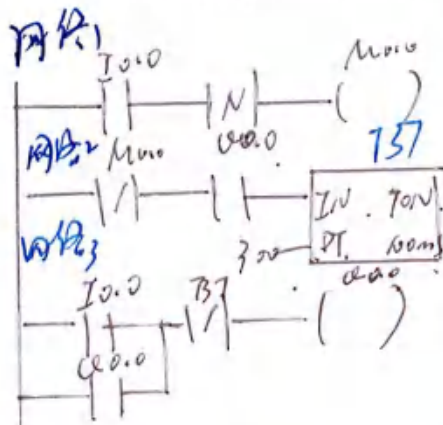 网络1
I0.0 M0.0
N
网络2 M0.0 Q0.0 T37
IN TON
300 PT 100ms
网络3 Q0.0
I0.0 T37
Q0.0